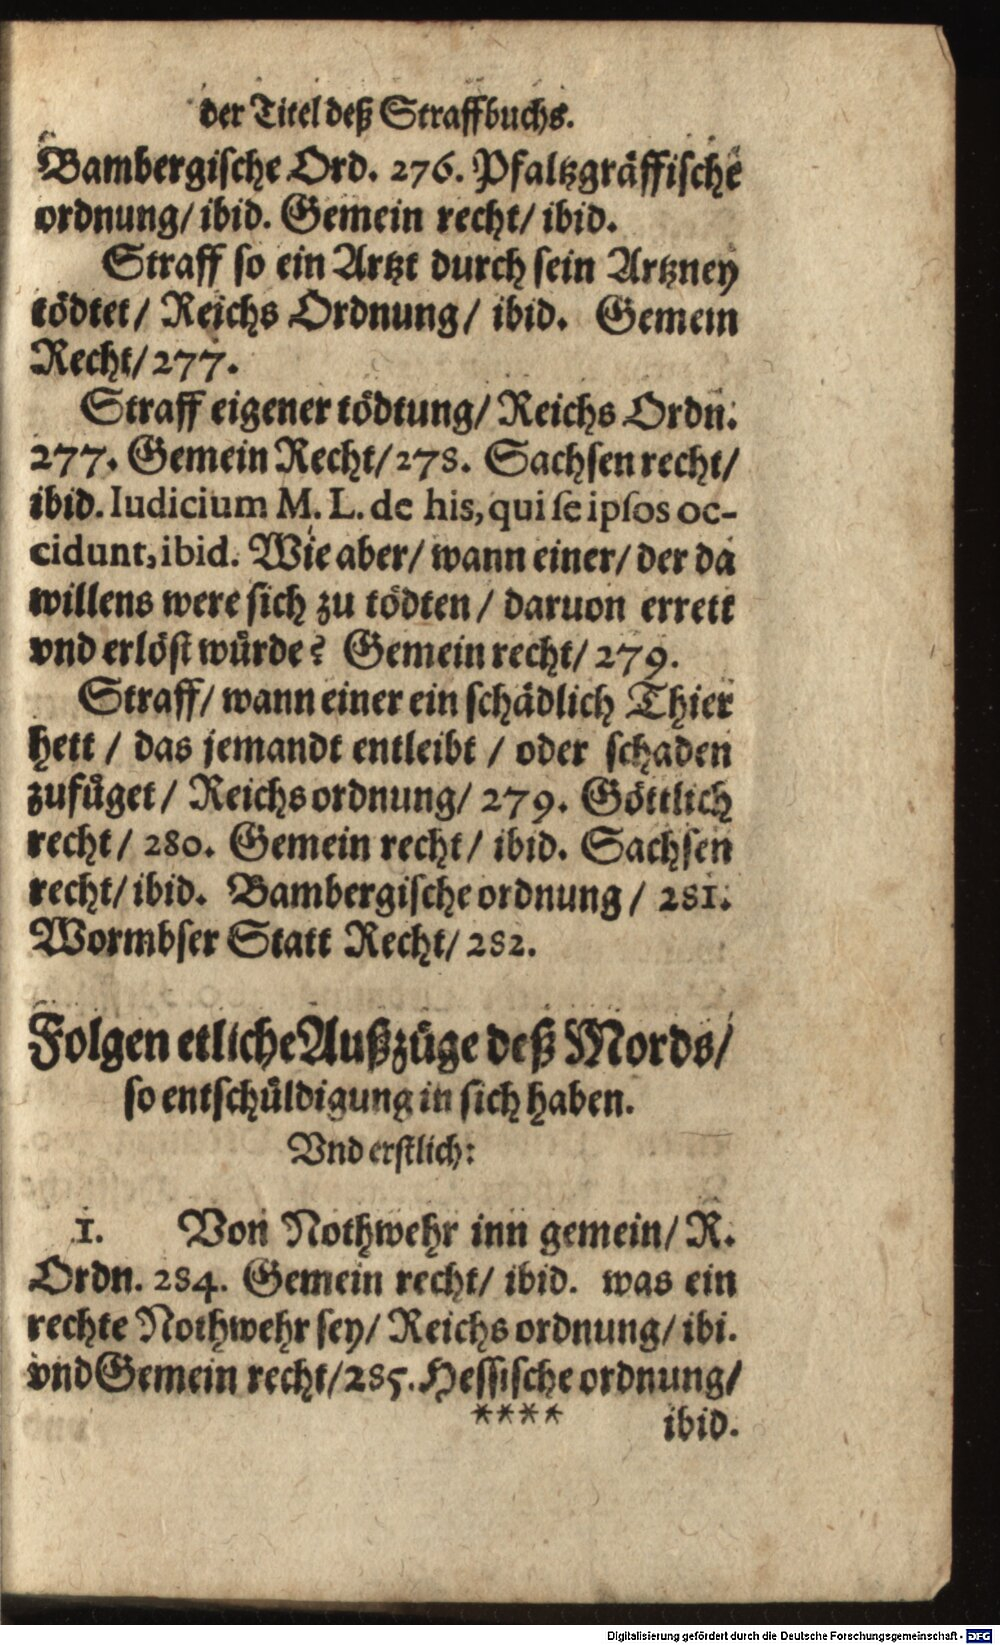 der Titel deß Straffbuchs.
Bambergische Ord. 276. Pfaltzgräffische
ordnung/ ibid. Gemein recht/ ibid.
Straff so ein Artzt durch sein Artzney
tödtet/ Reichs Ordnung/ ibid. Gemein
Recht/ 277.
Straff eigener tödtung/ Reichs Ordn.
277. Gemein Recht/ 278. Sachsen recht/
ibid. Iudicium M. L. de his, qui se ipsos oc-
cidunt, ibid. Wie aber/ wann einer/ der da
willens were sich zu tödten/ daruon errett
vnd erlöst würde? Gemein recht/ 279.
Straff/ wann einer ein schädlich Thier
hett/ das jemandt entleibt/ oder schaden
zufüget/ Reichs ordnung/ 279. Göttlich
recht/ 280. Gemein recht/ ibid. Sachsen
recht/ ibid. Bambergische ordnung/ 281.
Wormbser Statt Recht/ 282.
Folgen etliche Außzüge deß Mords/
so entschüldigung in sich haben.
Vnd erstlich:
1. Von Nothwehr inn gemein/ R.
Ordn. 284. Gemein recht/ ibid. was ein
rechte Nothwehr sey/ Reichs ordnung/ ibi.
vnd Gemein recht/ 285. Hessische ordnung/
**** ibid.
Digitalisierung gefördert durch die Deutsche Forschungsgemeinschaft - DFG